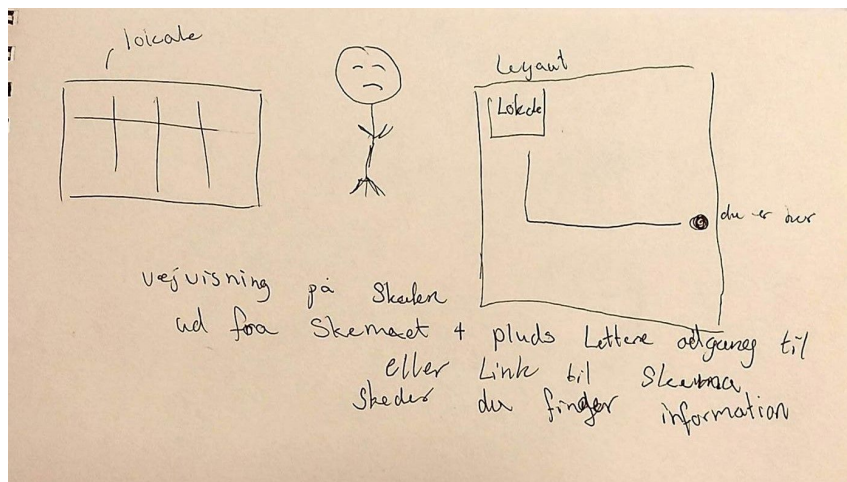 lokale
Layout
Lokale
du er her
vejvisning på Skolen
ud fra Skemaet + pluds Lettere adgang til
eller Link til Skema
Steder du finder information